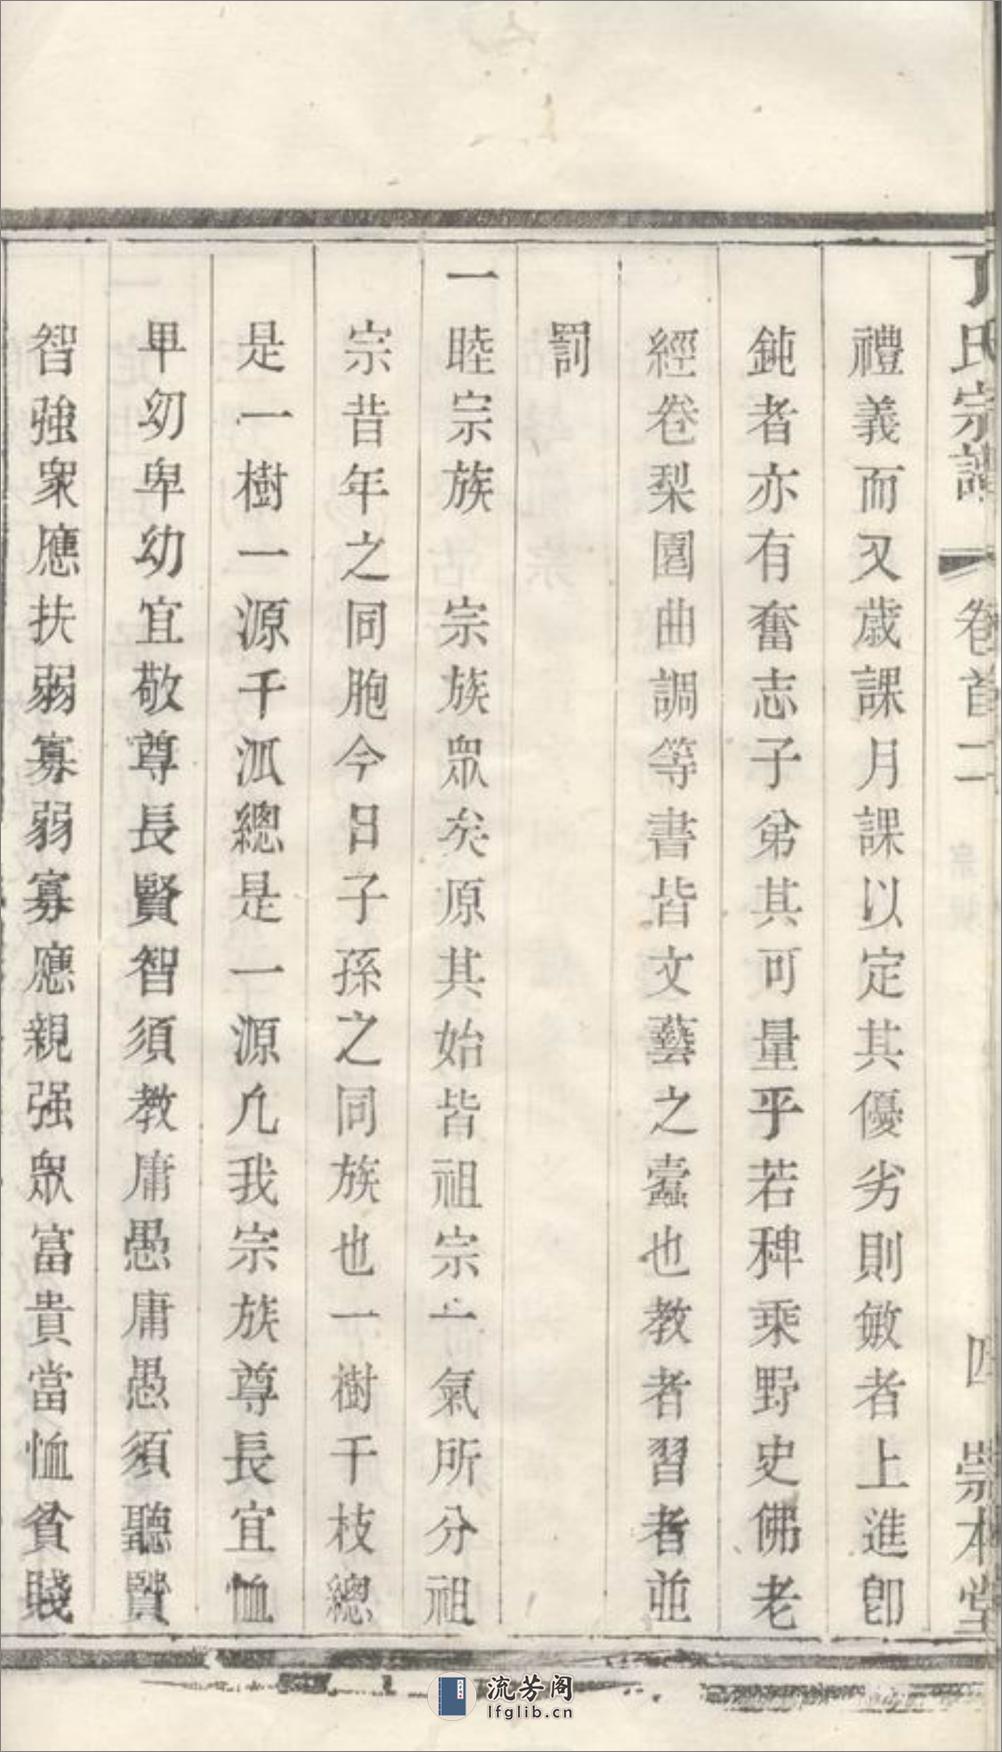 丁氏宗譜 卷首二 四 崇本堂
禮義而又歲課月課以定其優劣則敏者上進卽
鈍者亦有奮志子弟其可量乎若稗乘野史佛老
經卷梨園曲調等書皆文藝之蠹也教者習者並
罰
一睦宗族 宗族眾矣原其始皆祖宗一氣所分祖
宗昔年之同胞今日子孫之同族也一樹千枝總
是一樹一源千派總是一源凡我宗族尊長宜恤
卑幼卑幼宜敬尊長賢智須教庸愚庸愚須聽賢
智強衆應扶弱寡弱寡應親强眾富貴當恤貧賤
流芳阁
lfglib.cn